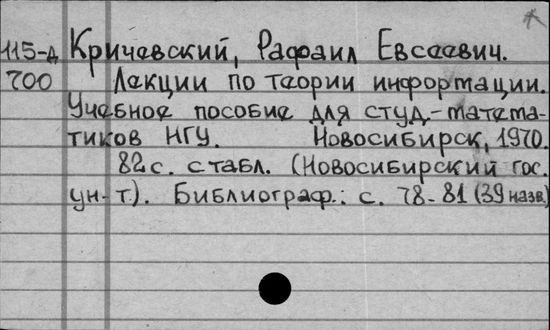 115-д Кричевский, Рафаил Евсеевич.
700 Лекции по теории информации.
Учебное пособие для студ.-матема-
тиков НГУ. Новосибирск, 1970.
82 с. с табл. (Новосибирский гос.
ун-т). Библиограф.: с. 78-81 (39 назв)